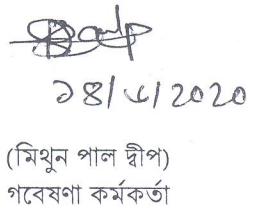 ১৪/৬/২০২০
(মিথুন পাল দ্বীপ)
গবেষণা কর্মকর্তা